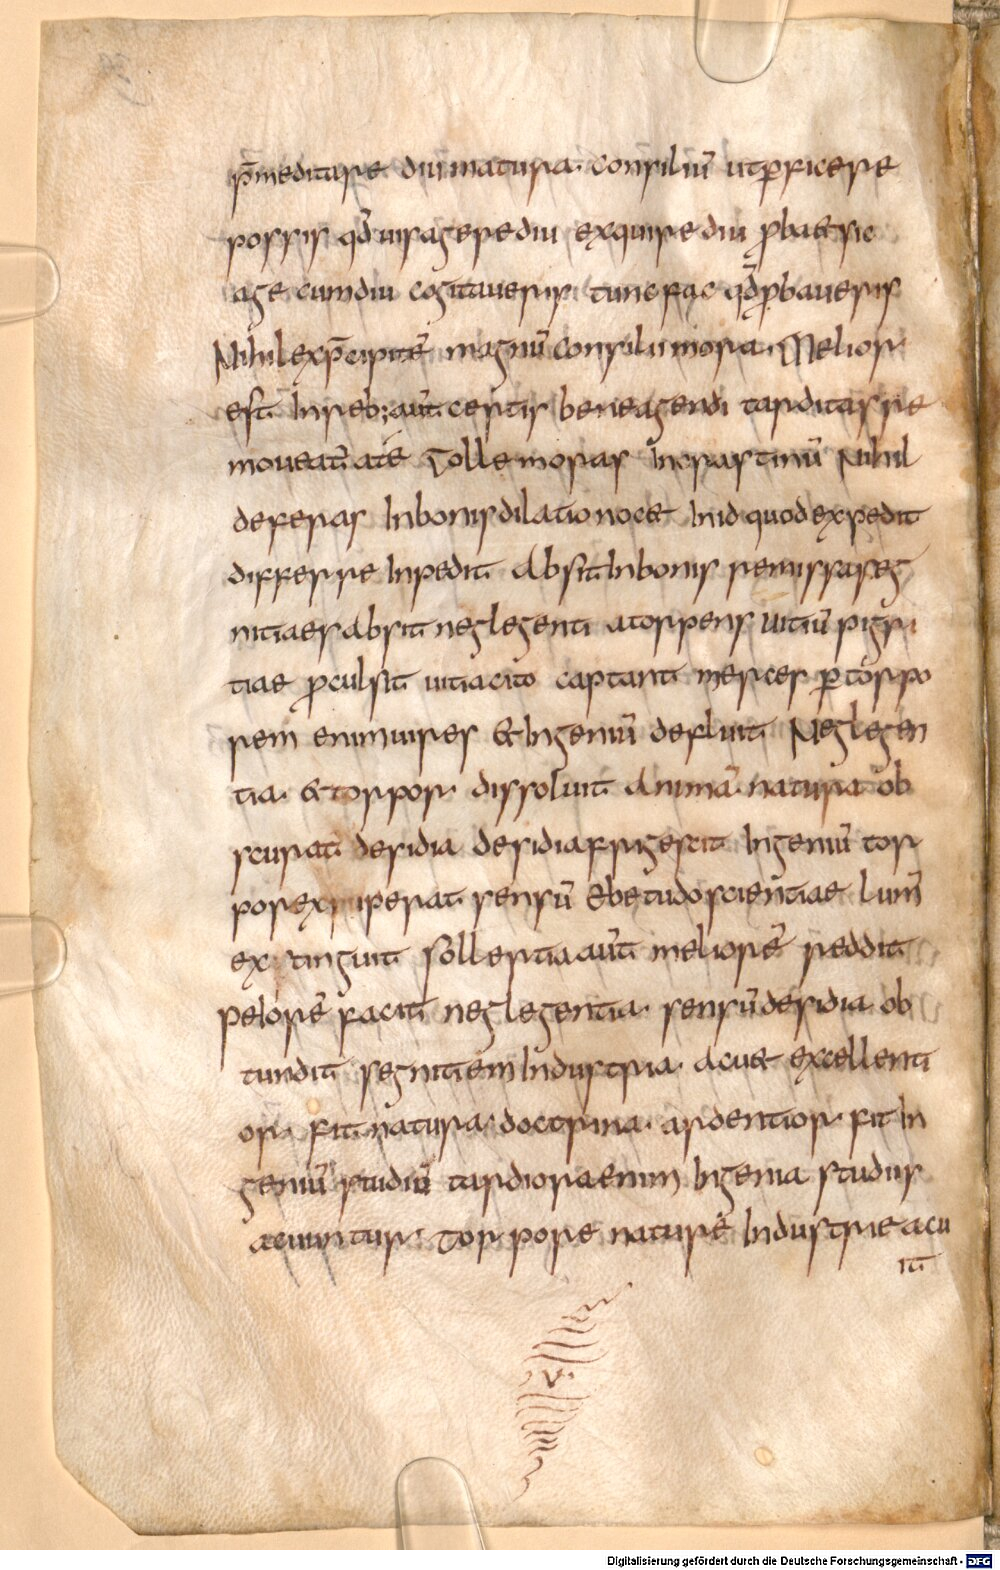 p̄meditare diu matura. consiliū ut ꝑficere
possis qđ uis agere diu exquire diu ꝓba et sic
age cum diu cogitaueris tunc fac qđ ꝓbaueris
Nihil exp̄cipitē magnū consilii mora. Melior
est. In reb; aūt certis bene agendi tarditas re
moueat̄ a te Tolle moras In crastinū Nihil
deferas In bonis dilatio nocet In id quod expedit
differre Inpedit Absit In bonis remissa seg
nitiaes absit neglegenti a torpens uitiū pigri
tiae ꝓcul sit uitia cito captant merces ꝑ torpo
rem enim uires & Ingeniū defluit Neglegen
tia. & torpor. dissoluit animā. natura ob
scurat desidia desidia frigescit Ingeniū tor
por exsuperat sensū Ebetudo scientiae lum̄
extinguit sollertia aūt meliorē reddit
peiorē facit neglegentia. sensū desidia ob
tundit segnitiem Industria. acuet excellenti
or. fit natura. doctrina. ardentior. fit In
geniū studiū tardiora enim Ingenia studiis
acuuntur. Torpore naturē Industrie acu
it
v.
Digitalisierung gefördert durch die Deutsche Forschungsgemeinschaft - DFG